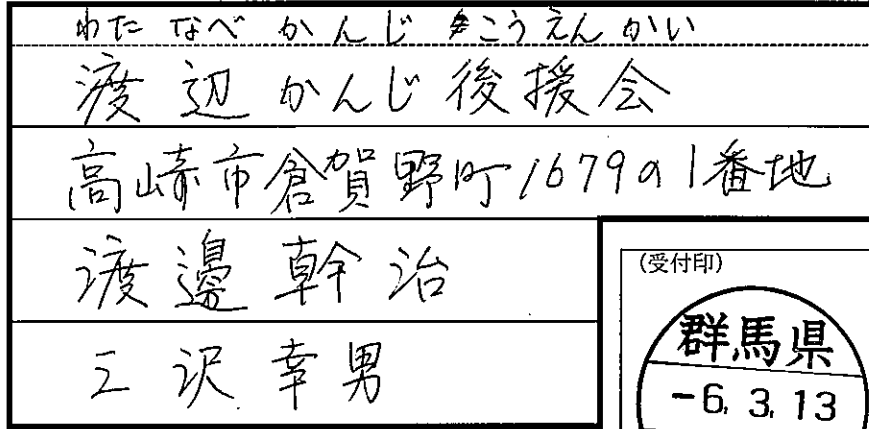 わたなべ かんじ こうえんかい
渡辺かんじ後援会
高崎市倉賀野町1679の1番地
渡邊幹治
三沢幸男
(受付印)
群馬県
-6.3.13